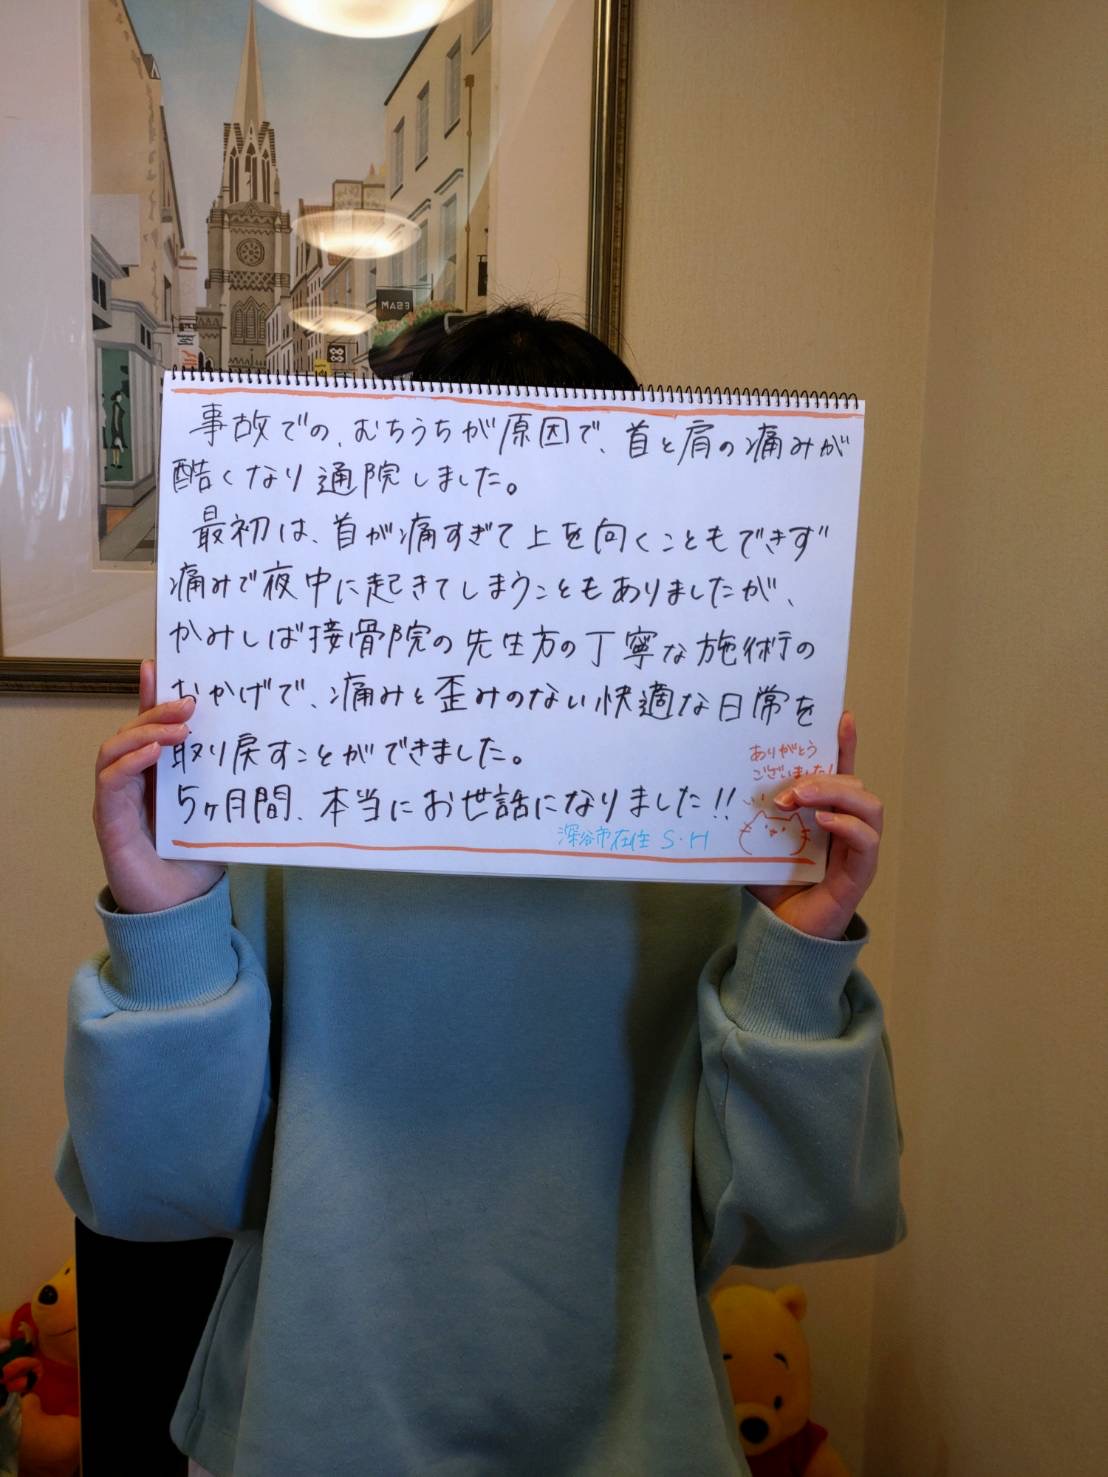 事故での、むちうちが原因で、首と肩の痛みが
酷くなり通院しました。
最初は、首が痛すぎて上を向くこともできず
痛みで夜中に起きてしまうこともありましたが、
かみしば接骨院の先生方の丁寧な施術の
おかげで、痛みと歪みのない快適な日常を
取り戻すことができました。
5ヶ月間、本当にお世話になりました!!
ありがとう
ございました!
深谷市在住 S・H